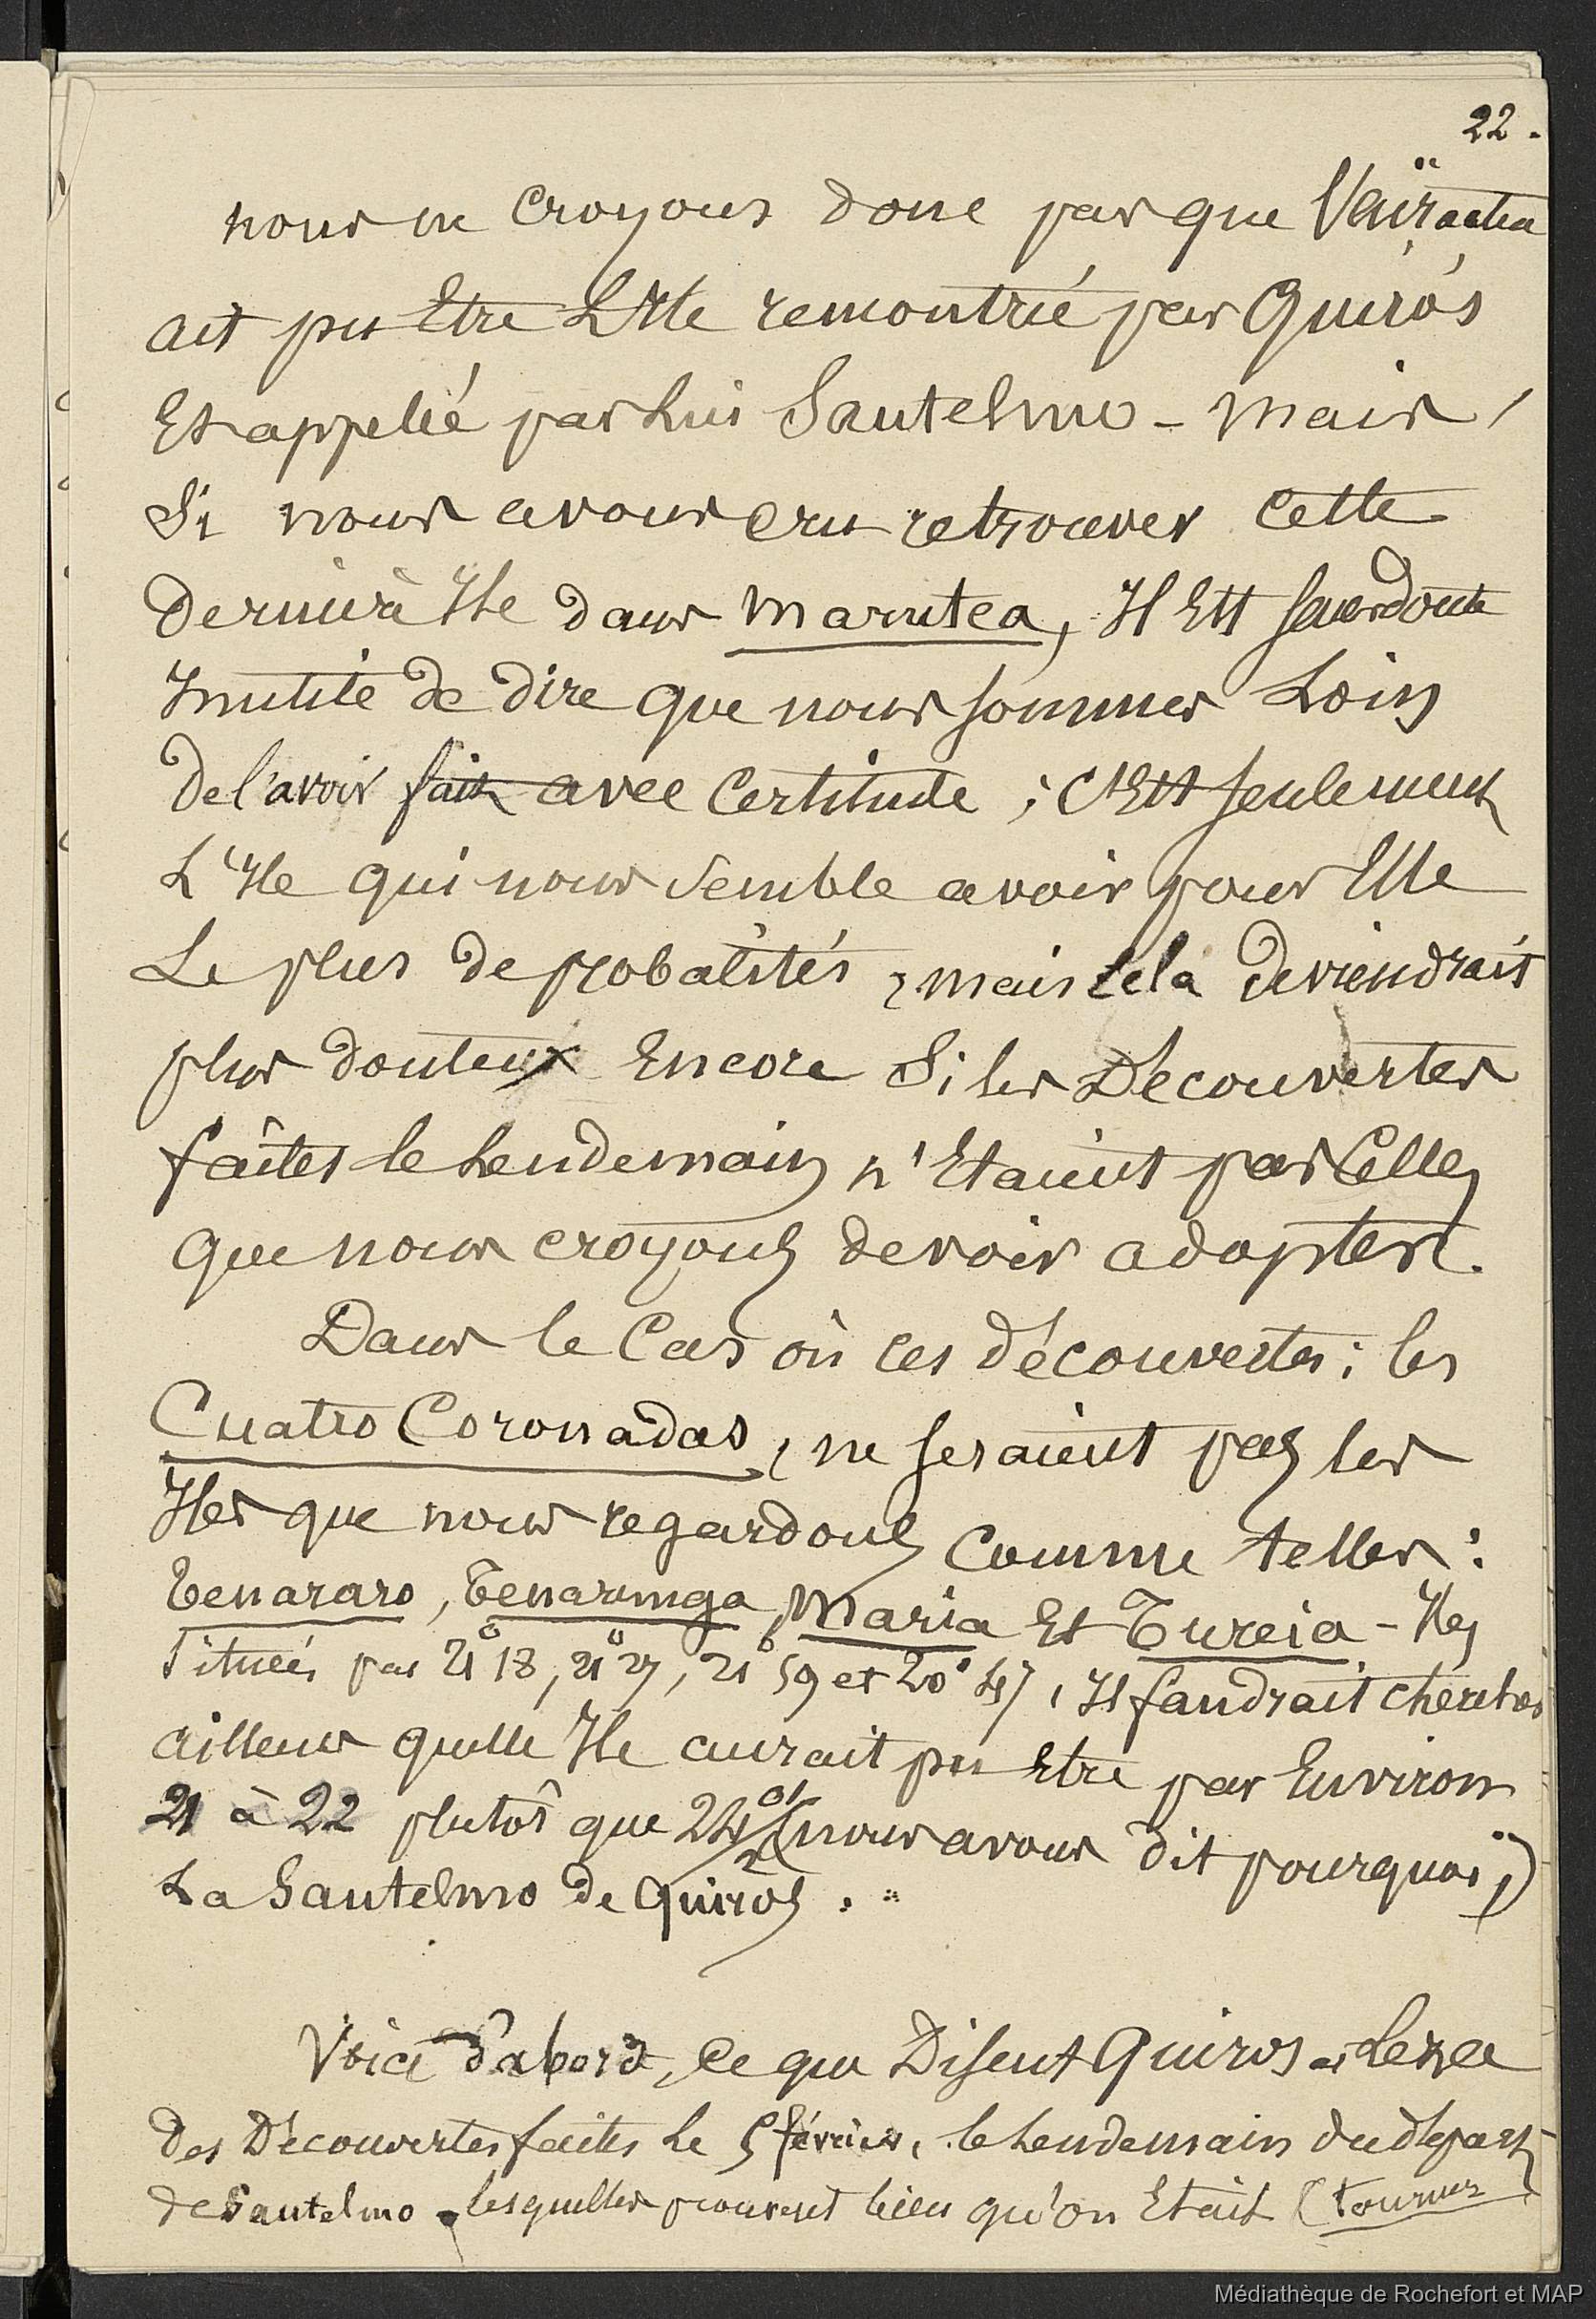 22.
nous ne croyons donc pas que Vaïraatea
ait pu Etre L'Ile remontrée par Quiros
Et appelée par Lui Santelmo - mais,
Si nous avons cru retrouver cette
dernière Ile dans Marutea, Il Est sans doute
Inutile de dire que nous sommes Loin
de l'avoir fait avec Certitude; C'Est seulement
L'Ile qui nous semble avoir pour Elle
Le plus de probalités, mais cela deviendrait
plus douteux Encore Si les Découvertes
faîtes le Lendemain n'Etaient pas Celles
que nous croyons devoir adopter.
Dans le Cas où ces découvertes: les
Cuatro Coronadas, ne seraient pas les
Iles que nous regardons comme telles:
Tenararo, Tenarunga, Maria Et Tureia - Iles
situées par 21° 18, 21° 27, 21° 59 et 20° 47, Il faudrait chercher
ailleurs quelle Ile aurait pu Etre par Environ
21 à 22 plutôt que 24 (nous avons dit pourquoi,)
La Santelmo de Quiros.
Voici d'abord, Ce que Disent Quiros et Leza
des Découvertes faites Le 5 février, le Lendemain du départ
de Santelmo, lesquelles prouvent bien qu'on Etait (tournez
Médiathèque de Rochefort et MAP